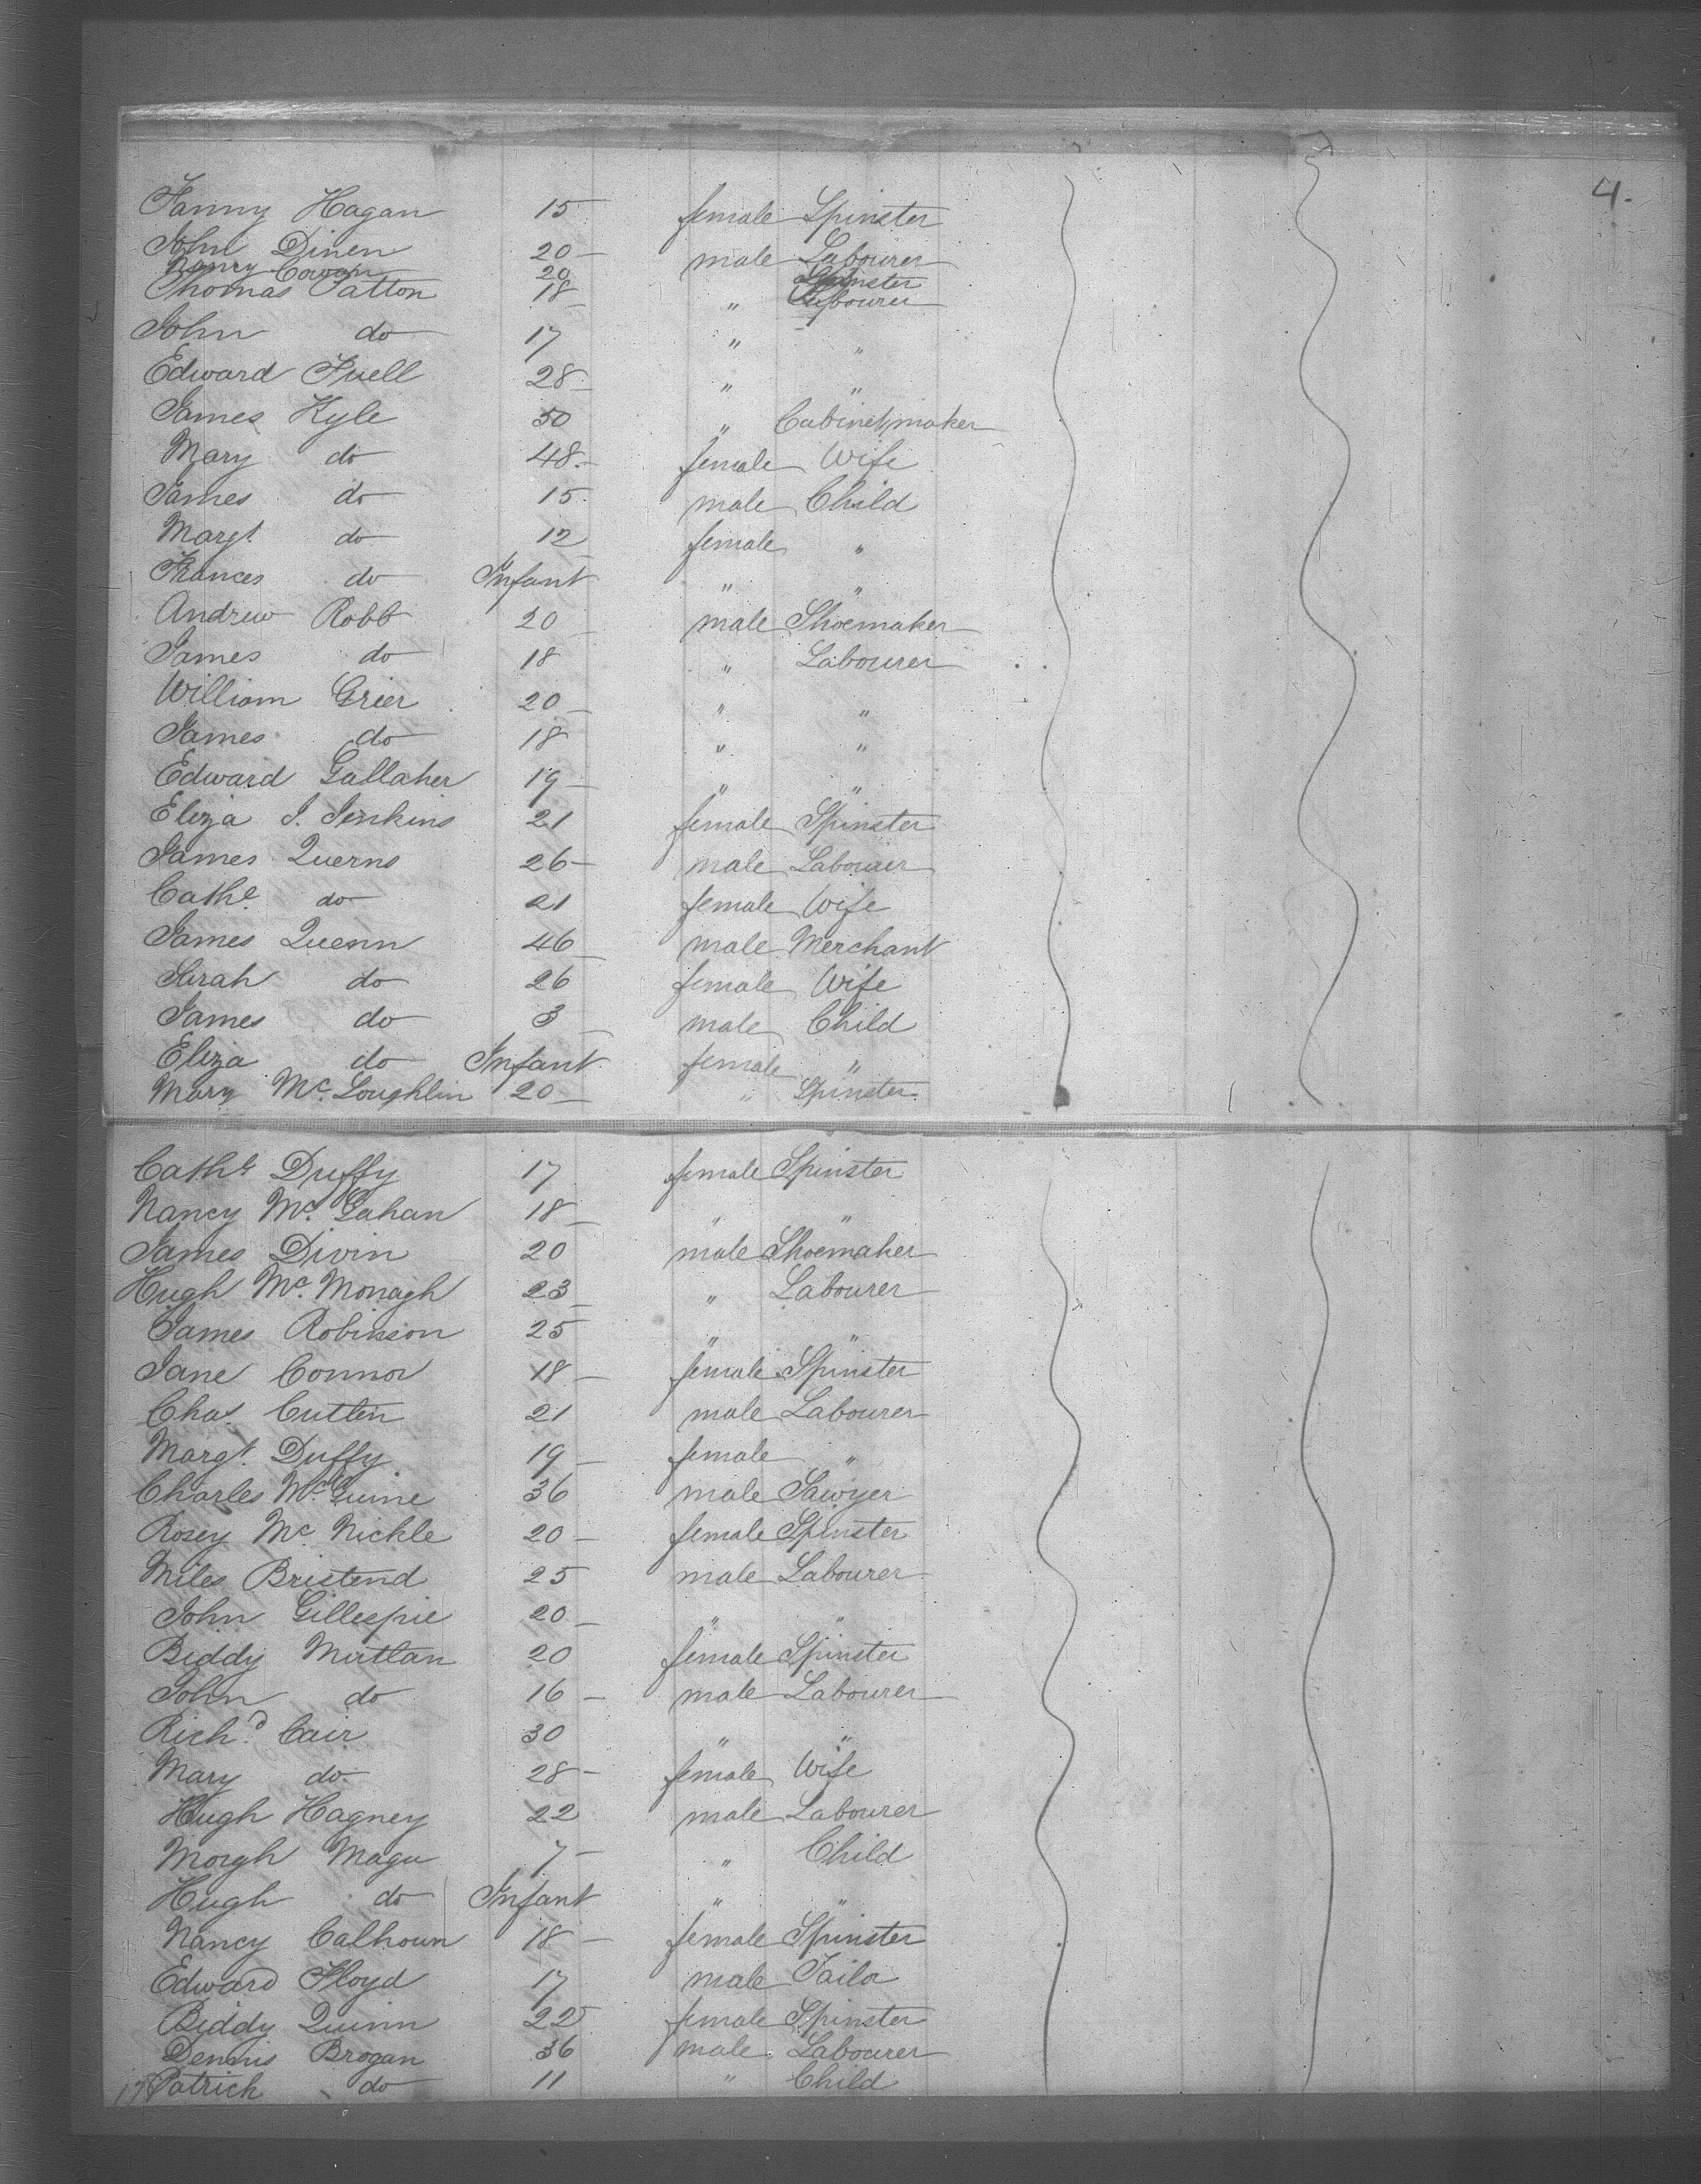 4.
Fanny Hagan 15 female Spinster
John Dinen 20 male Labourer
Nancy Cowan 20 Spinster
Thomas Patton 18 " Labourer
John do 17 " "
Edward Fuell 28 " "
James Kyle 50 " Cabinetmaker
Mary do 48 female Wife
James do 15 male Child
Margt do 12 female "
Frances do Infant " "
Andrew Robb 20 male Shoemaker
James do 18 " Labourer
William Grier 20 " "
James do 18 " "
Edward Gallaher 19 " "
Eliza J. Jenkins 21 female Spinster
James Querns 26 male Labourer
Cathe do 21 female Wife
James Quenn 46 male Merchant
Sarah do 26 female Wife
James do 3 male Child
Eliza do Infant female "
Mary Mc.Loughlin 20 " Spinster
Cathe Duffy 17 female Spinster
Nancy Mc.Gahan 18 " "
James Divin 20 male Shoemaker
Hugh Mc.Monagh 23 " Labourer
James Robinson 25 " "
Jane Connor 18 female Spinster
Chas. Cutlin 21 male Labourer
Margt. Duffy 19 female "
Charles Mc.Guine 36 male Sawyer
Rosey Mc.Nickle 20 female Spinster
Miles Bristend 25 male Labourer
John Gillespie 20 " "
Biddy 20 female Spinster
John do 16 male Labourer
Richd. Cair 30 " "
Mary do 28 female Wife
Hugh Hagney 22 male Labourer
Morgh Magu 7 " Child
Hugh do Infant " "
Nancy Calhoun 18 female Spinster
Edward Floyd 17 male Tailor
Biddy Quinn 22 female Spinster
Dennis Brogan 36 male Labourer
Patrick do 11 " Child